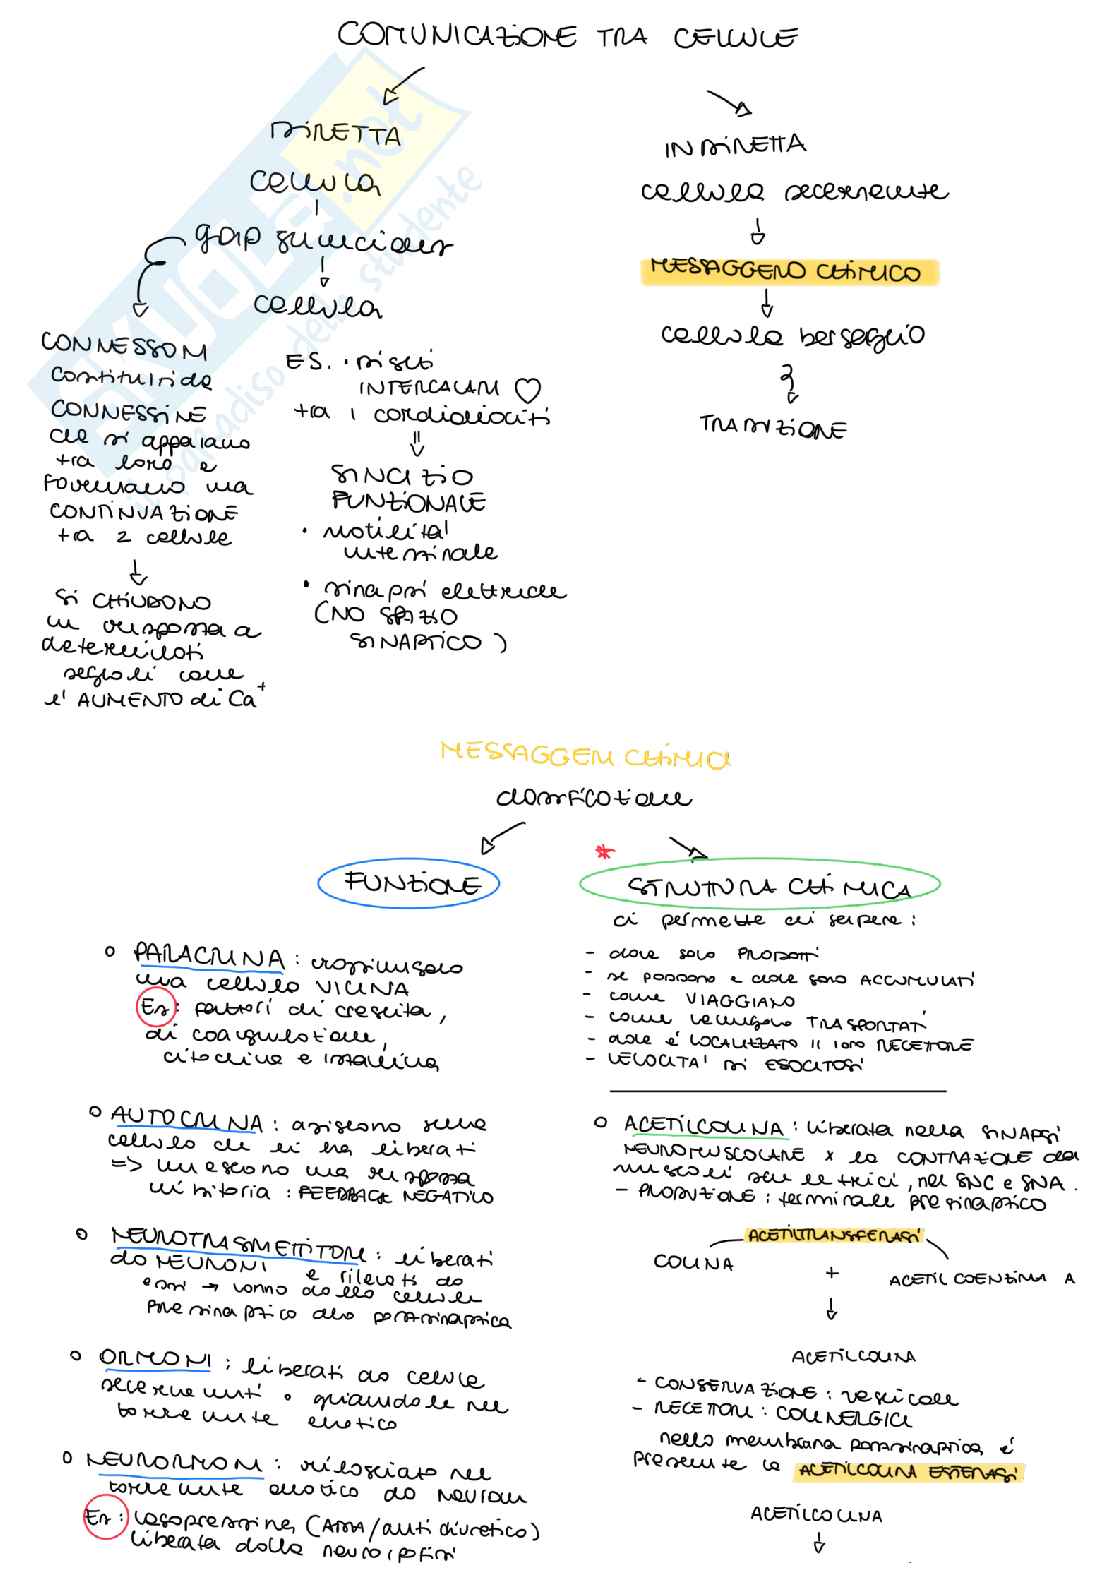 COMUNICAZIONE TRA CELLULE
DIRETTA
cellula
gap junctions
cellula
CONNESSONI
Costituiti da
CONNESSINE
che si appaiano
tra loro e
formano una
CONTINUAZIONE
tra 2 cellule
si CHIUDONO
in risposta a
determinati
segnali come
l'AUMENTO di Ca+
ES. · DISCHI
INTERCALARI ♡
tra i cardiomiociti
SINCIZIO
FUNZIONALE
· motilità
intestinale
· sinapsi elettriche
(NO SPAZIO
SINAPTICO)
INDIRETTA
cellula secernente
MESSAGGERO CHIMICO
cellula bersaglio
TRADUZIONE
MESSAGGERI CHIMICI
classificazione
FUNZIONE
o PARACRINA: raggiungono
una cellula VICINA
Es: fattori di crescita,
di coagulazione,
citochine e istamina
o AUTOCRINA: agiscono sulla
cellula che li ha liberati
=> innescono una risposta
inibitoria: FEEDBACK NEGATIVO
o NEUROTRASMETTITORI: liberati
da NEURONI e rilevati da
essi → vanno dalla cellula
presinaptica alla postsinaptica
o ORMONI: liberati da cellule
secernenti o ghiandole nel
torrente ematico
o NEURORMONI: rilasciato nel
torrente ematico da neuroni
Es: vasopressina (ADH/antidiuretico)
liberata dalla neuroipofisi
* STRUTTURA CHIMICA
ci permette di sapere:
- dove sono PRODOTTI
- se possono e dove sono ACCUMULATI
- come VIAGGIANO
- come vengono TRASPORTATI
- dove è LOCALIZZATO il loro RECETTORE
- VELOCITA' DI ESOCITOSI
o ACETILCOLINA: liberata nella SINAPSI
NEUROMUSCOLARE x la CONTRAZIONE dei
muscoli scheletrici, nel SNC e SNA.
- PRODUZIONE: terminale presinaptico
ACETILTRANSFERASI
COLINA
+
ACETIL COENZIMA A
ACETILCOLINA
- CONSERVAZIONE: vescicole
- RECETTORI: COLINERGICI
nella membrana postsinaptica è
presente la ACETILCOLINA ESTERASI
ACETILCOLINA
SKUOLA.net
il paradiso dello studente